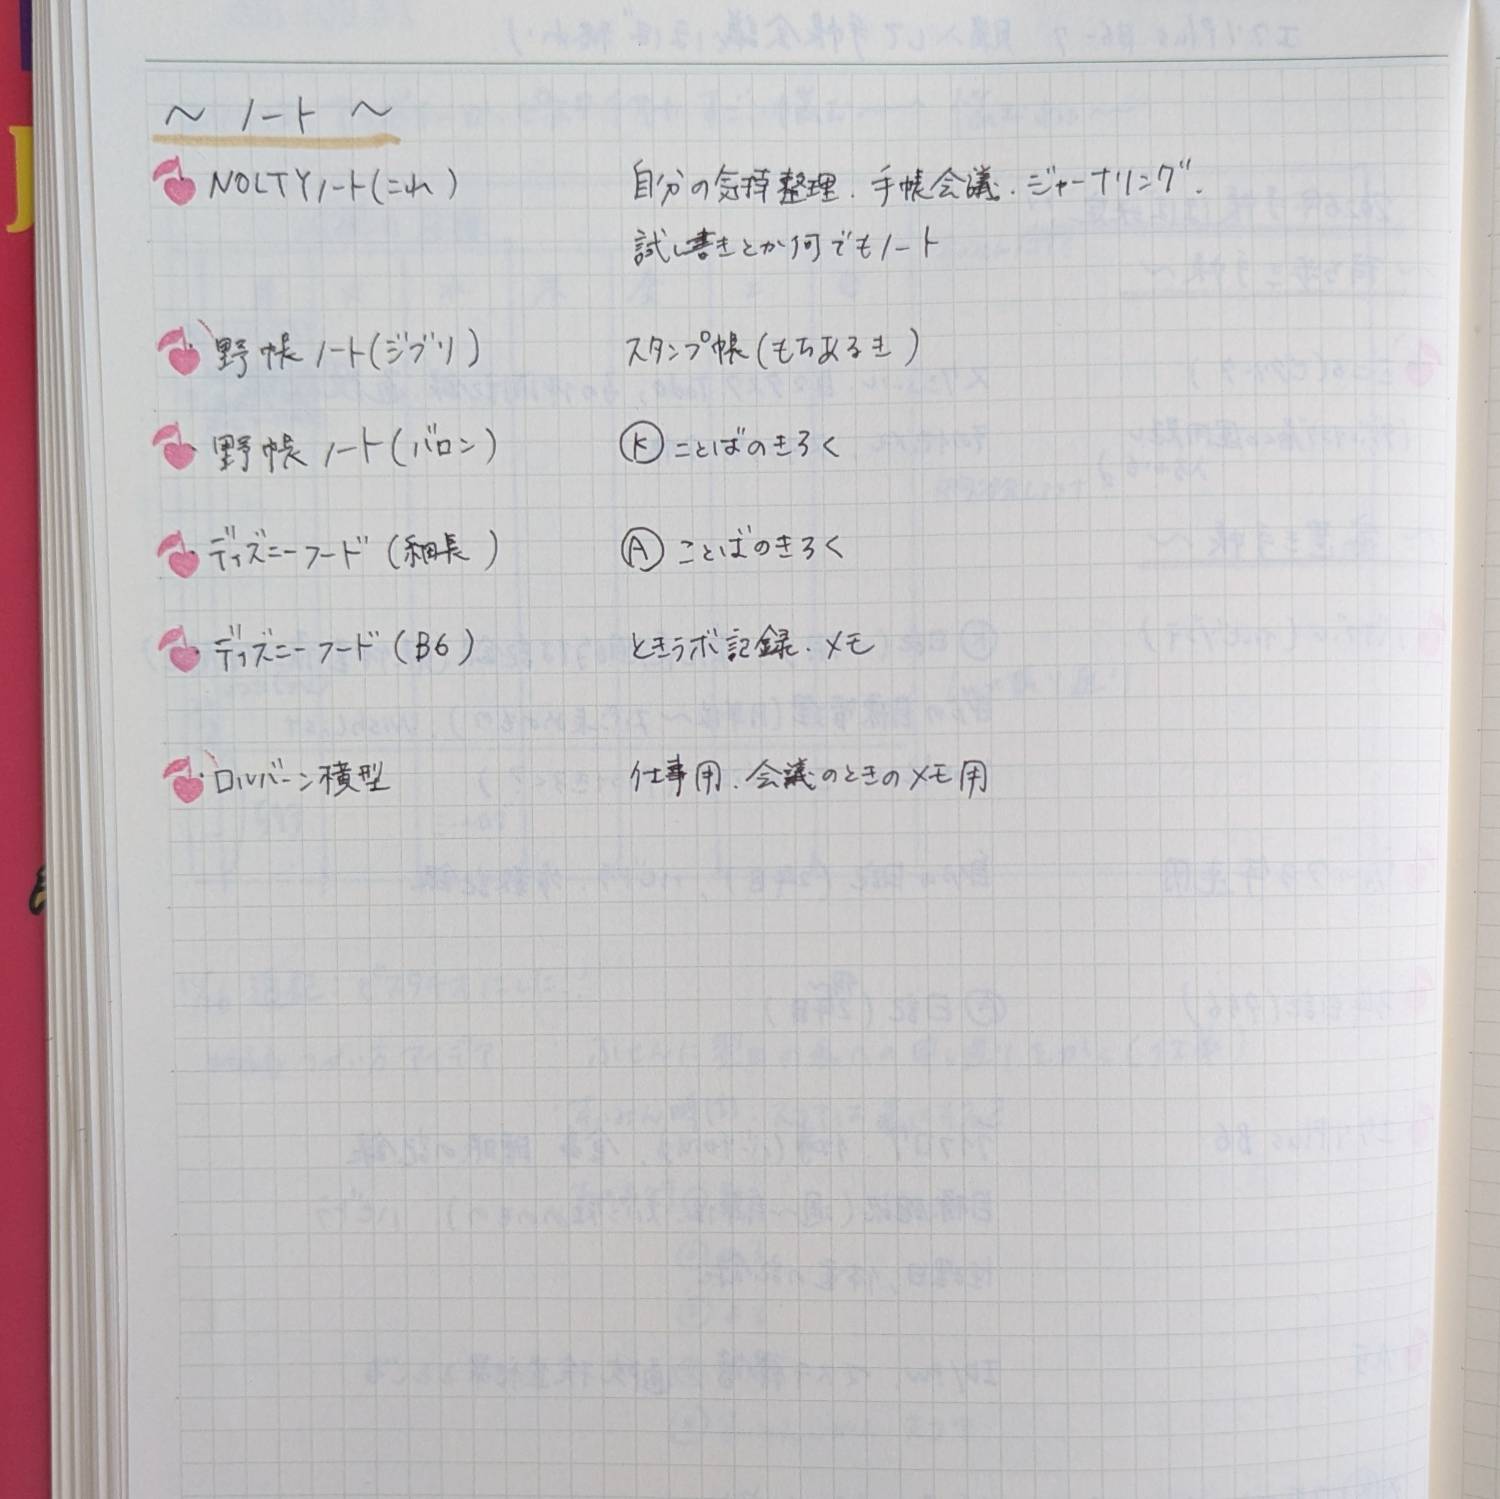 ～ ノート ～
NOLTYノート(これ) 自分の気持整理. 手帳会議. ジャーナリング.
試し書きとか何でもノート
野帳ノート(ジブリ) スタンプ帳(もちあるき)
野帳ノート(バロン) Ⓚ ことばのきろく
ディズニーフード(細長) Ⓐ ことばのきろく
ディズニーフード(B6) ときラボ記録. メモ
ロルバーン横型 仕事用. 会議のときのメモ用